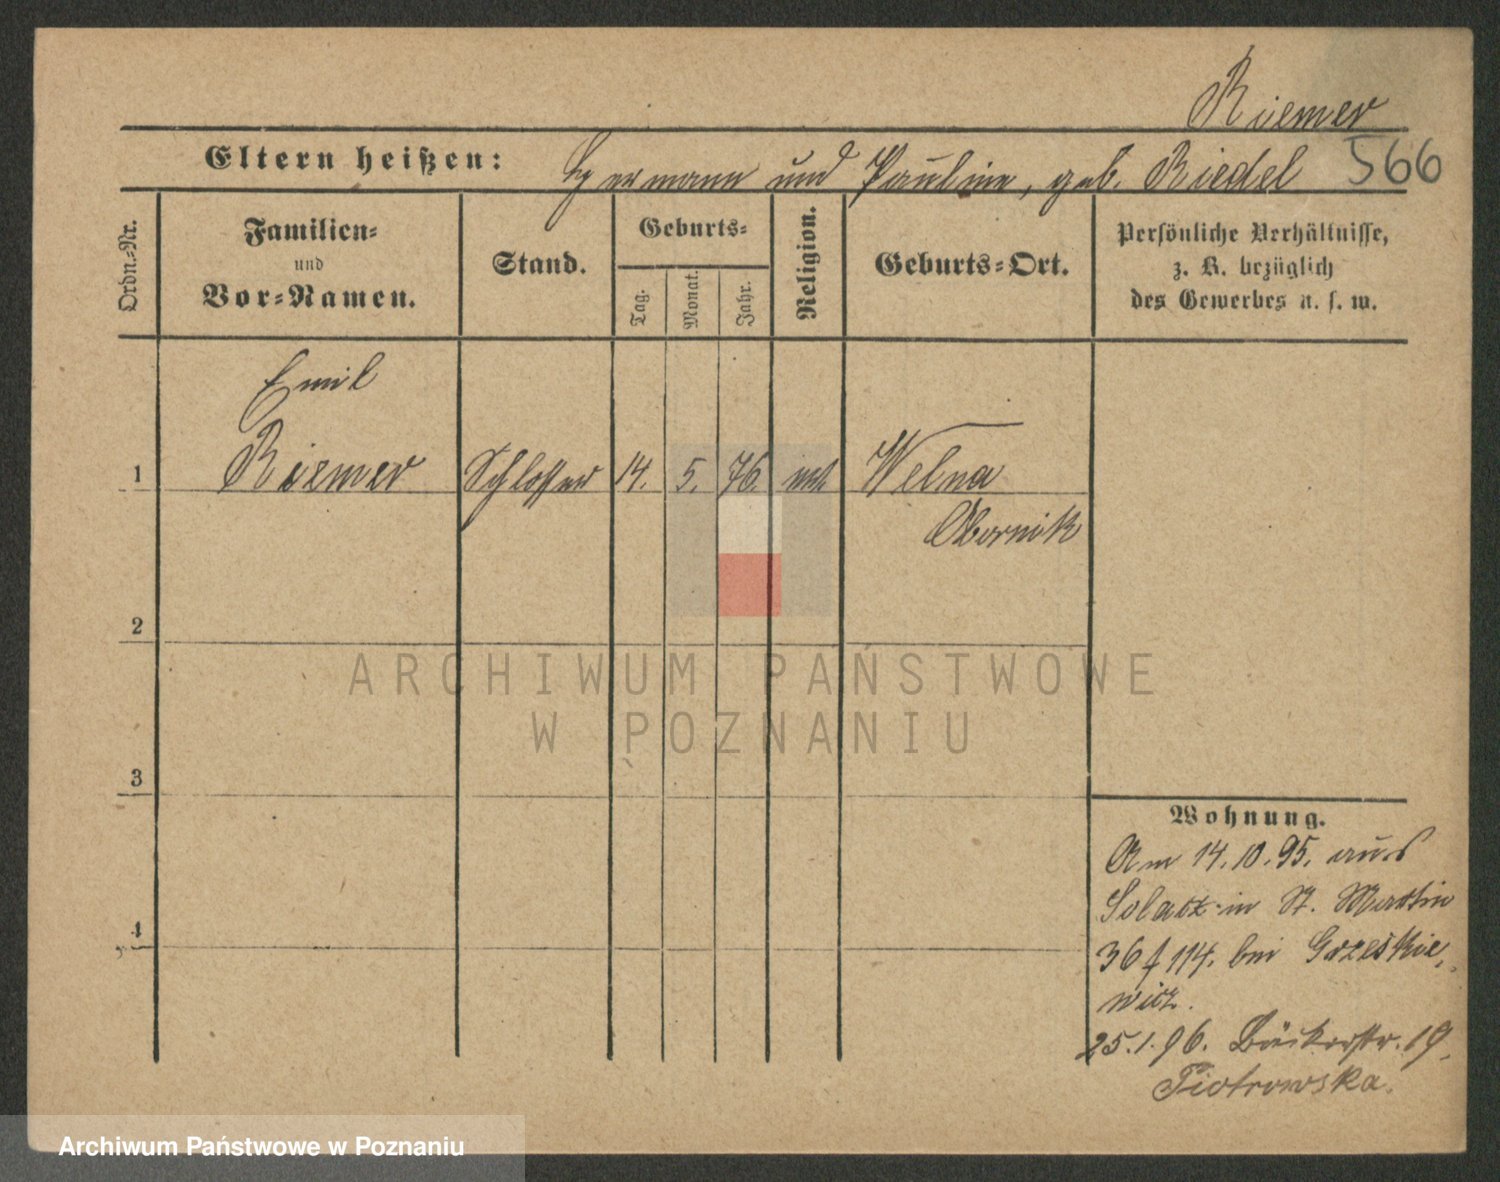 Riemer
Eltern heißen: Hermann und Pauline, geb. Riedel 566
Ordn.-Nr.
Familien-
und
Vor-Namen.
Stand.
Geburts-
Tag.
Monat.
Jahr.
Religion.
Geburts-Ort.
Persönliche Verhältnisse,
z. B. bezüglich
des Gewerbes u. s. w.
Emil
1 Riemer Schlosser 14. 5. 76. Welna
Obornik
2
ARCHIWUM PAŃSTWOWE
W POZNANIU
3
4
Wohnung.
Am 14.10.95. aus
Solacz in St. Martin
36 f 114. bei Grzeskie-
wicz.
25.1.96. Bäckerstr. 19.
Piotrowska.
Archiwum Państwowe w Poznaniu